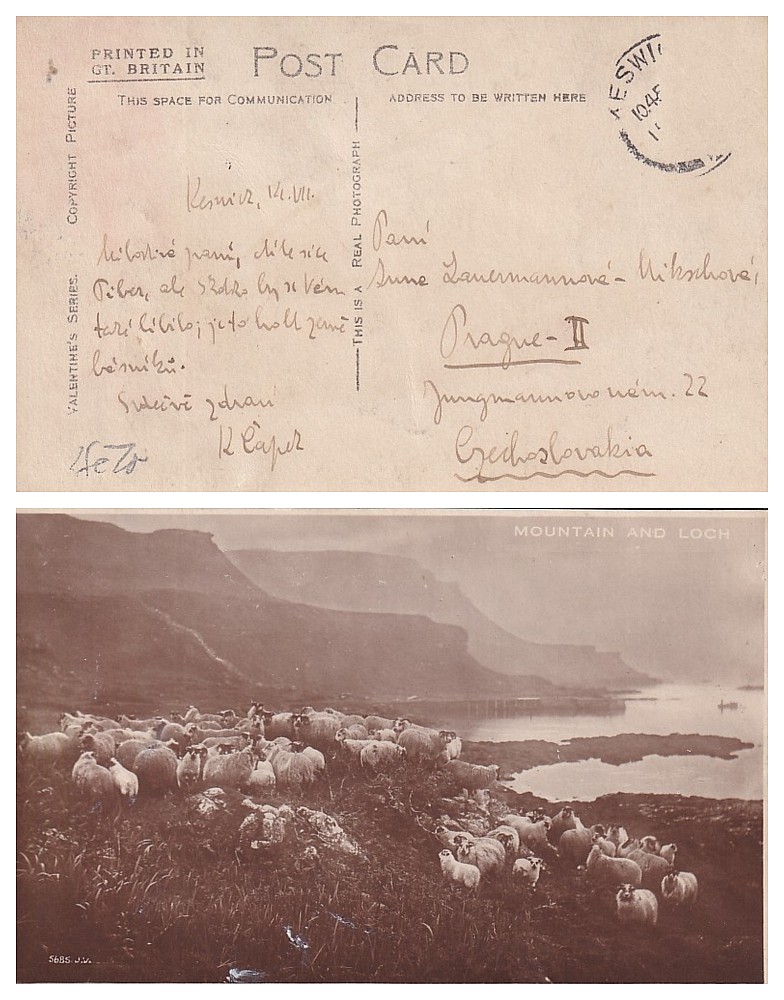 PRINTED IN
GT. BRITAIN
POST CARD
THIS SPACE FOR COMMUNICATION
ADDRESS TO BE WRITTEN HERE
VALENTINE'S SERIES. COPYRIGHT PICTURE
THIS IS A REAL PHOTOGRAPH
KESWI
10.45
VII.
Milostivá paní,
Piber, ale by se Vám
také líbilo; je to holt země
básníků.
Srdečně zdraví
K Čapek
Paní
Anna Lauermannová-Mikschová,
Prague-II
Jungmannovo nám. 22
Czechoslovakia
MOUNTAIN AND LOCH
5685. J.V.